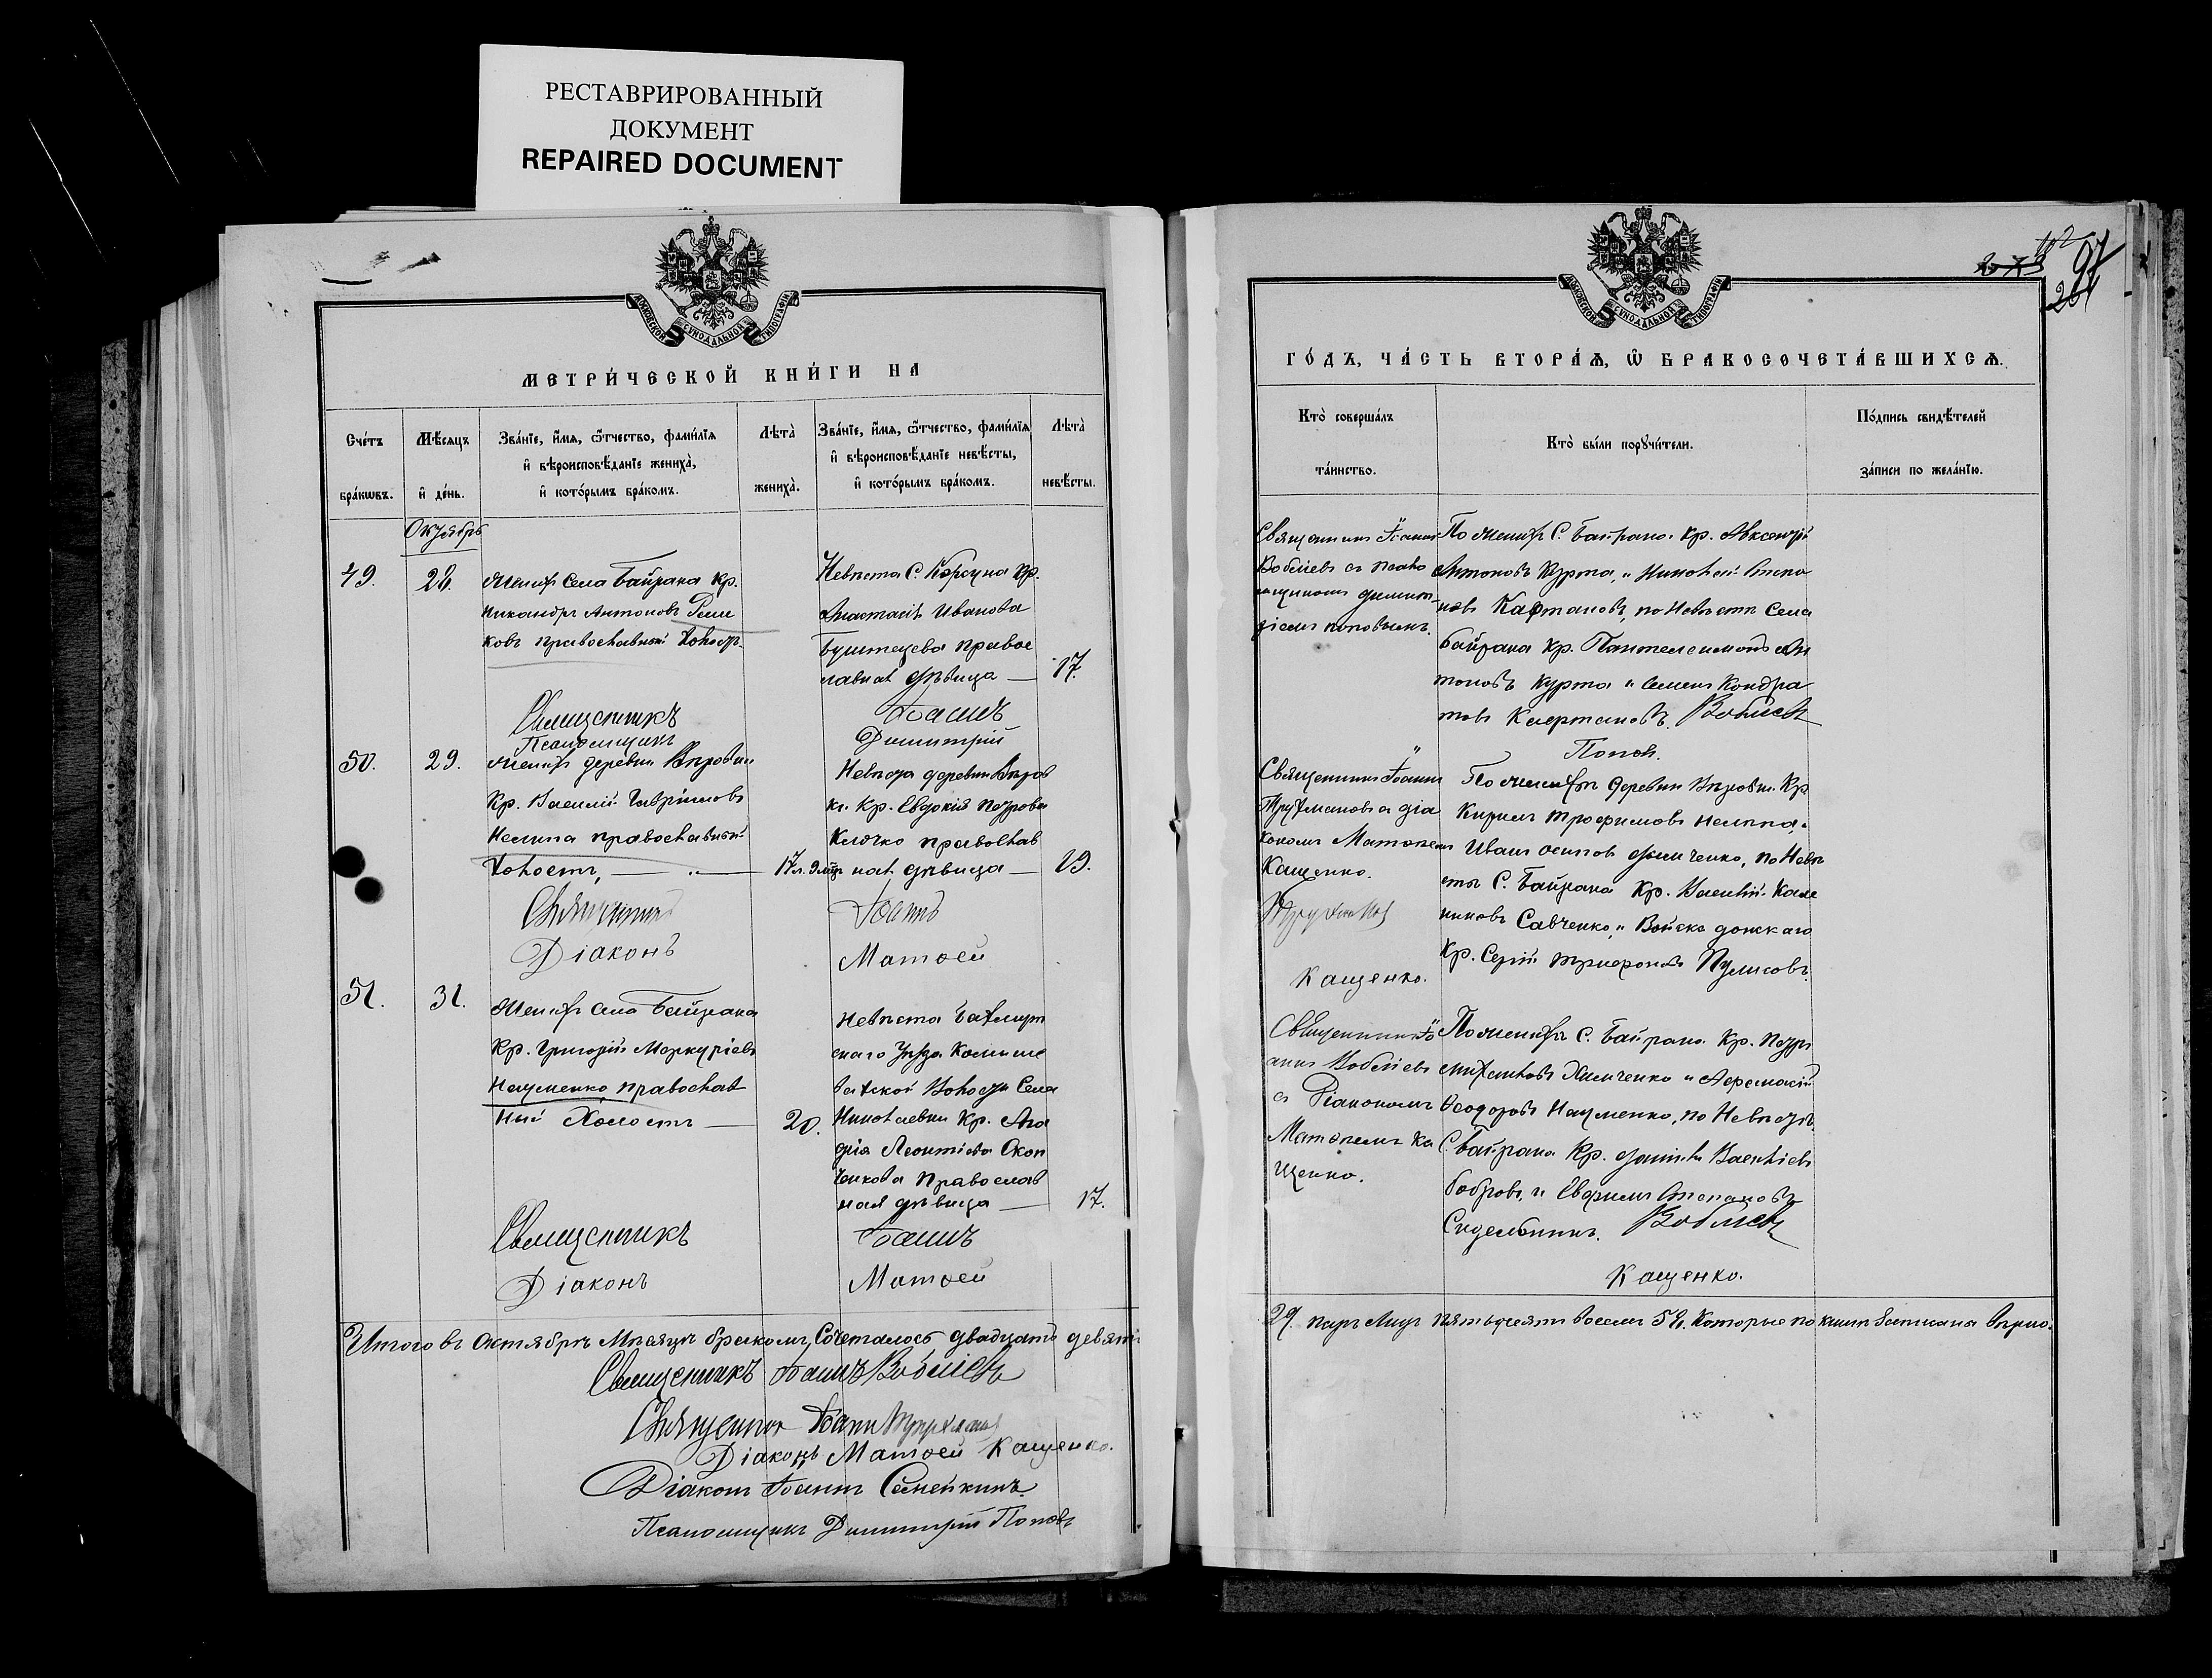 РЕСТАВРИРОВАННЫЙ
ДОКУМЕНТ
REPAIRED DOCUMENT
МОСКОВСКОЙ СѴНОДАЛЬНОЙ ТИПОГРАФІИ
МЕТРИ́ЧЕСКОЙ КНИ́ГИ НА
Сче́тъ бра́кωвъ.
Мѣ́сяцъ и҆ де́нь.
Зва́нїе, и҆́мѧ, ѻ҆́тчество, фами́лїѧ
и҆ вѣроисповѣ́данїе жениха̀,
и҆ кото́рымъ бра́комъ.
Лѣта̀
жениха̀.
Зва́нїе, и҆́мѧ, ѻ҆́тчество, фами́лїѧ
и҆ вѣроисповѣ́данїе невѣ́сты,
и҆ кото́рымъ бра́комъ.
Лѣта̀
невѣ́сты.
Октябрь
49.
28.
Женихъ Села Байрака Кр.
Никандръ Антоновъ
православный Холостъ.
Невѣста С. Корсуна Кр.
Анастасія Иванова
правос
лавная дѣвица —
17.
Священникъ
Іоаннъ
Псаломщикъ
Димитрій
50.
29.
Женихъ деревни Вѣровки
Кр. Василій Гавріиловъ
Нелипа православный
Холостъ, —
17 л. 9 мѣс.
Невѣста деревни Вѣров
ки Кр. Евдокія Петрова
Клочко православ
ная дѣвица —
19.
Священникъ
Іоаннъ
Діаконъ
Матѳей
51.
31.
Женихъ села Байрака
Кр. Григорій Меркуріевъ
Науменко, православ
ный Холостъ —
20.
Невѣста Бахмут
скаго Уѣзда
Волости Села
Николаевки Кр. Ага
ѳія Леонтіева Скоп
Православ
ная дѣвица —
17.
Священникъ
Іоаннъ
Діаконъ
Матѳей
Итого въ Октябрѣ Мѣсяцѣ бракомъ Сочеталось двадцать девять
Священникъ Іоаннъ Воблиевъ
Священникъ Іоаннъ Трухмановъ
Діаконъ Матѳей Кащенко.
Діаконъ Іоаннъ Семейкинъ
Псаломщикъ Димитрій Поповъ
МОСКОВСКОЙ СѴНОДАЛЬНОЙ ТИПОГРАФІИ
102
97
261
ГО́ДЪ, ЧА́СТЬ ВТОРА́Ѧ, Ѡ҆ БРАКОСОЧЕТА́ВШИХСѦ.
Кто̀ соверша́лъ
та́инство.
Кто̀ бы́ли порꙋчи́тели.
По́дпись свидѣ́телей
за́писи по жела́нїю.
Священникъ Іоаннъ
Воблиевъ съ псало
мщикомъ Димит
ріемъ Поповымъ.
По женихѣ С. Байрака Кр. Авксентій
Антоновъ Курта, и Николай
Кафтановъ, по Невѣстѣ Села
Байрака Кр. Пантелеимонъ Ан
тоновъ Курта и Семенъ Кондра
товъ Кафтановъ. Воблиевъ
Поповъ.
Священникъ Іоаннъ
Трухмановъ съ діа
кономъ Матѳеемъ
Кащенко.
Трухмановъ
Кащенко.
По женихѣ деревни Вѣровки Кр
Кирилъ Трофимовъ Нелипа, и
Иванъ Осиповъ Фомиченко, по Невѣ
стѣ С. Байрака Кр. Василій
Савченко, и Войска донскаго
Кр. Сергій Трифоновъ
Священникъ Іо
аннъ Воблиевъ
съ Діакономъ
Матѳеемъ Ка
щенко.
По женихѣ С. Байрака Кр. Петръ
Михаиловъ Химченко и Афанасій
Ѳеодоровъ Науменко, по Невѣстѣ
С. Байрака Кр. Даніилъ Васильевъ
Бобровъ, и Евфимъ Степановъ
Сидельникъ. Воблиевъ
Кащенко.
29. паръ лицъ пятьдесятъ восемь 58, Которые по книгѣ записаны вѣрно.